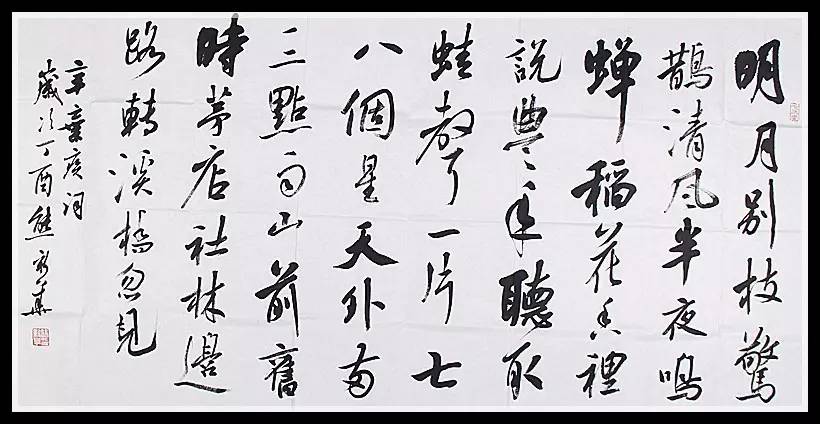 明月别枝驚
鵲清风半夜鳴
蝉稻花香裡
説豊年聽取
蛙聲一片七
八個星天外兩
三點雨山前舊
時茅店社林邊
路轉溪橋忽見
辛棄疾詞
歲次丁酉熊